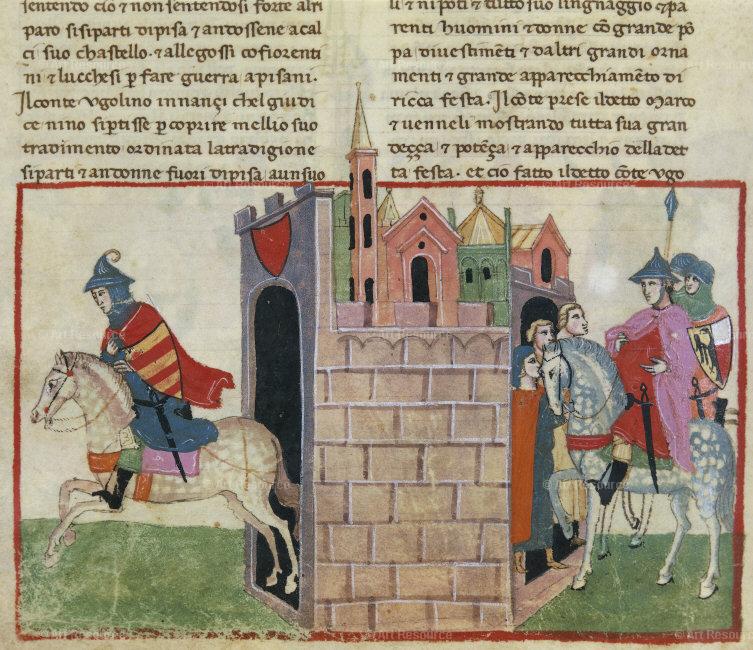 sentendo cio & non sentendosi forte altri
paro si sipartì di pisa & andossene a cal
ci suo chastello. & allegossi co fiorenti
ni & lucchesi p fare guerra a pisani.
Il conte vgolino innançi chel giudi
ce nino siptisse p coprire mellio suo
tradimento ordinata la tradigione
siparti & andonne fuori di pisa a un suo
li & nipoti & tutto suo lingnaggio & pa
renti huomini & donne cō grande pō
pa di uestimēti & daltri grandi orna
menti & grande apparecchiamēto di
ricca festa. Il cōte prese il detto Marco
& uenneli mostrando tutta sua gran
deçça & potēça & apparecchio della det
ta festa. et cio fatto il detto cōte vgo
© Art Resource